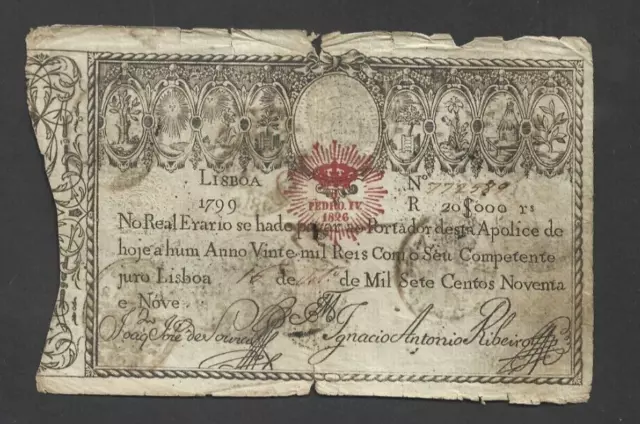 LISBOA
1799
PEDRO. IV.
1826
Nº
R 20$000 rs
No Real Erario se hade pagar ao Portador desta Apolice de
hoje a hum Anno Vinte mil Reis Com o Seu Competente
juro Lisboa 16 de de Mil Sete Centos Noventa
e Nóve.
João Joze de Souza
Ignacio Antonio Ribeiro